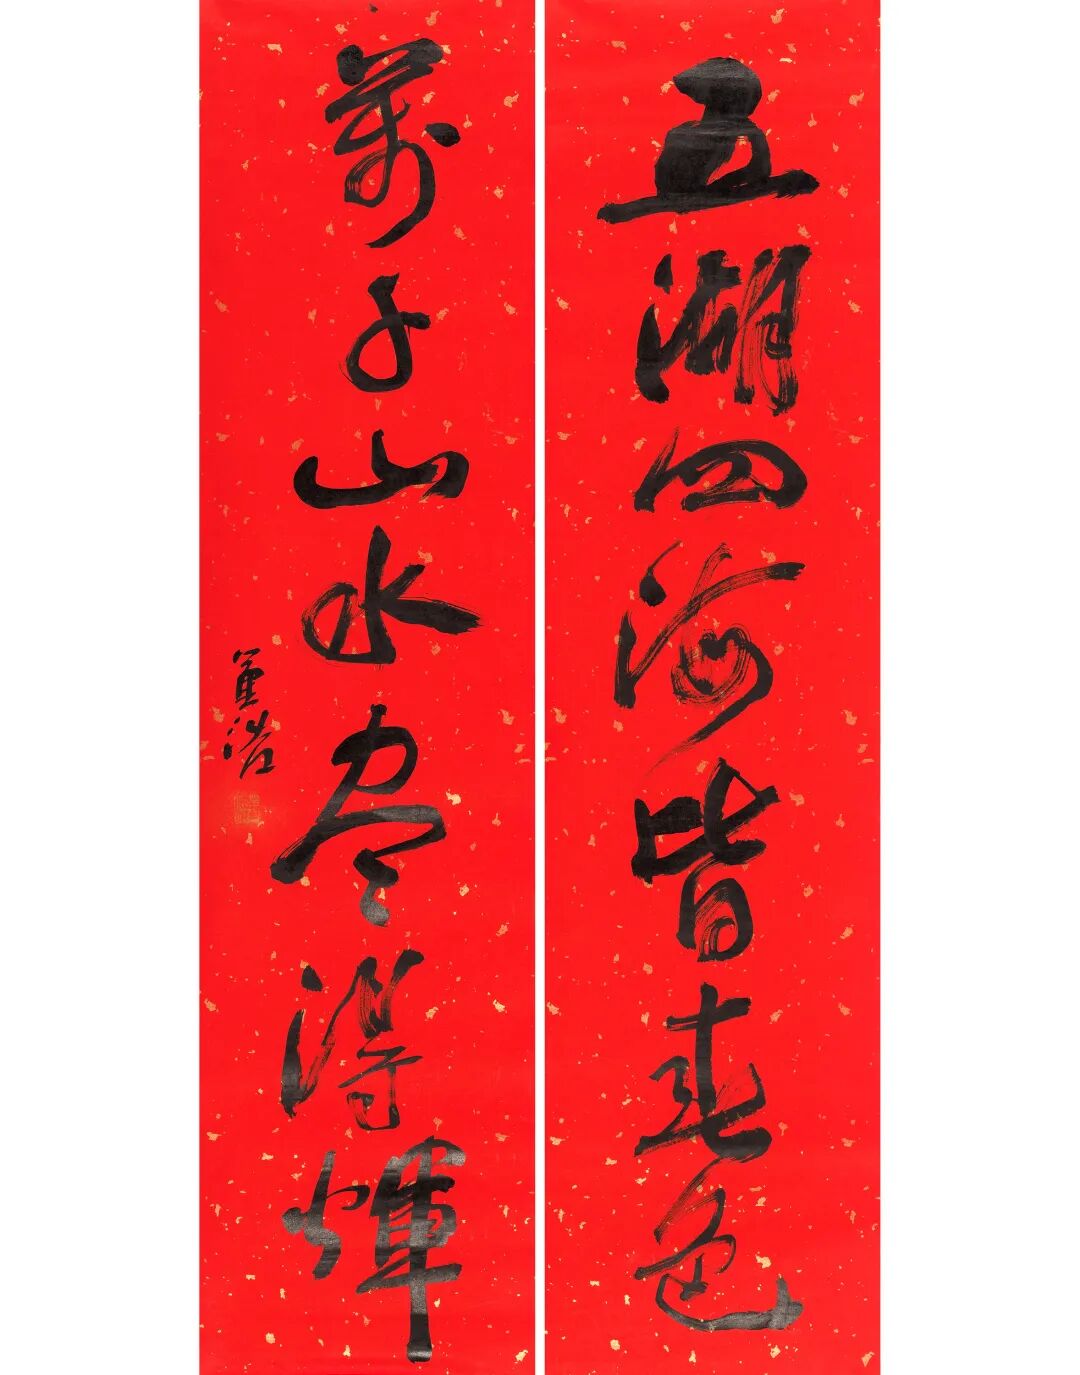 五湖四海皆春色
萬千山水尽得煇
董浩